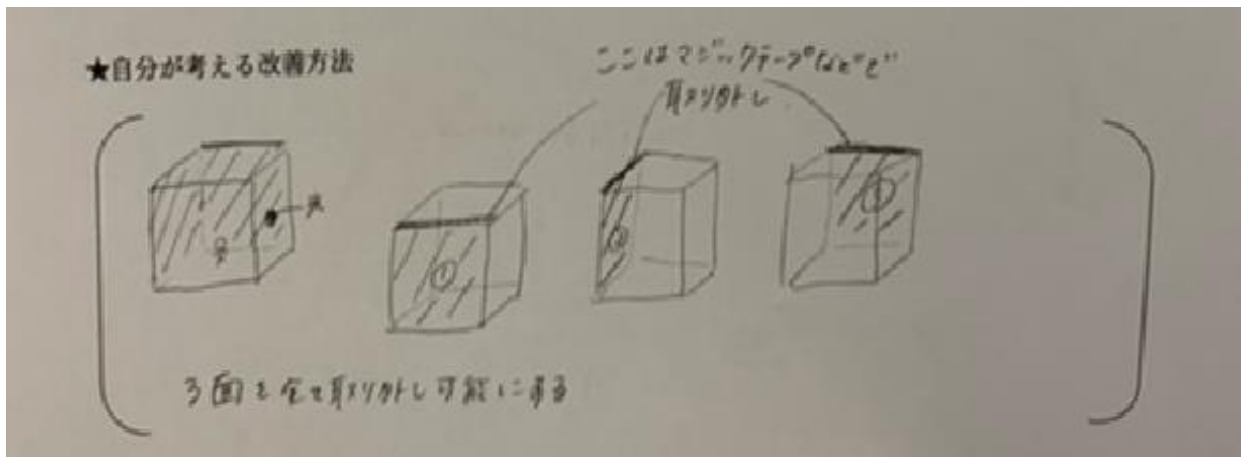 ★自分が考える改善方法
ここはマジックテープなどで
取り外し
①
②
③
3面を全て取り外し可能にする